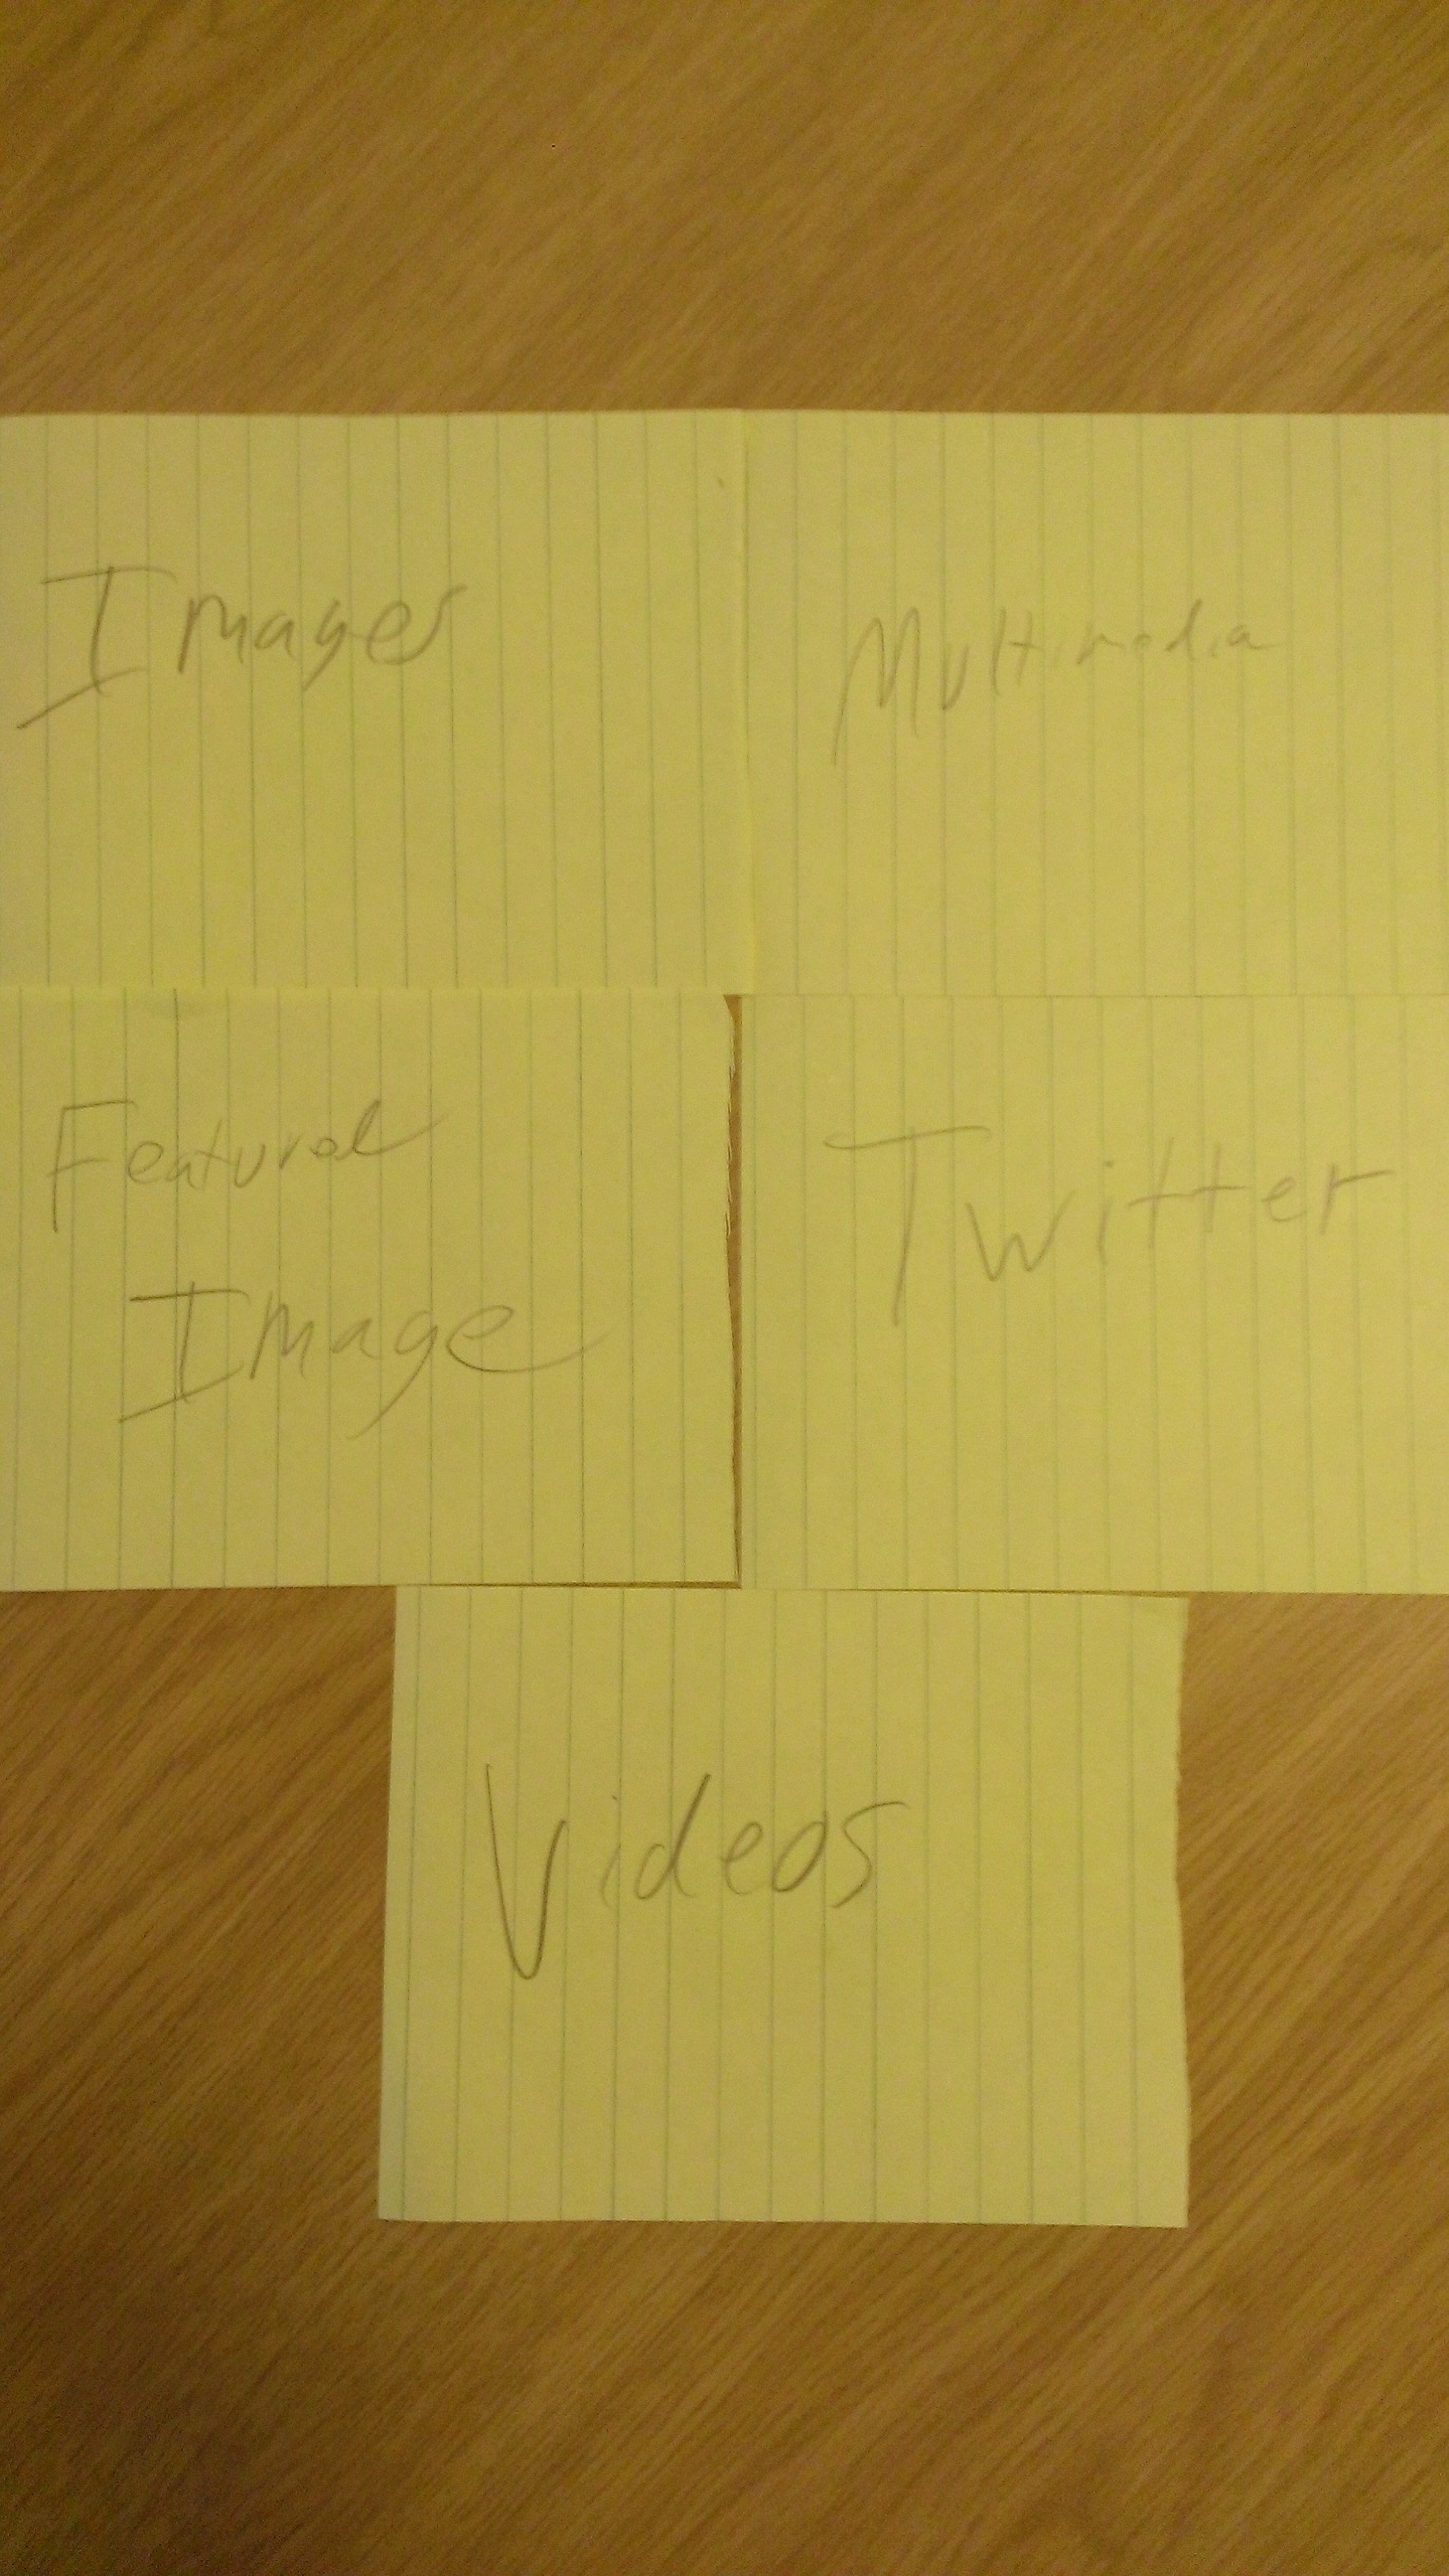 Images
Multimedia
Featured
Image
Twitter
Videos